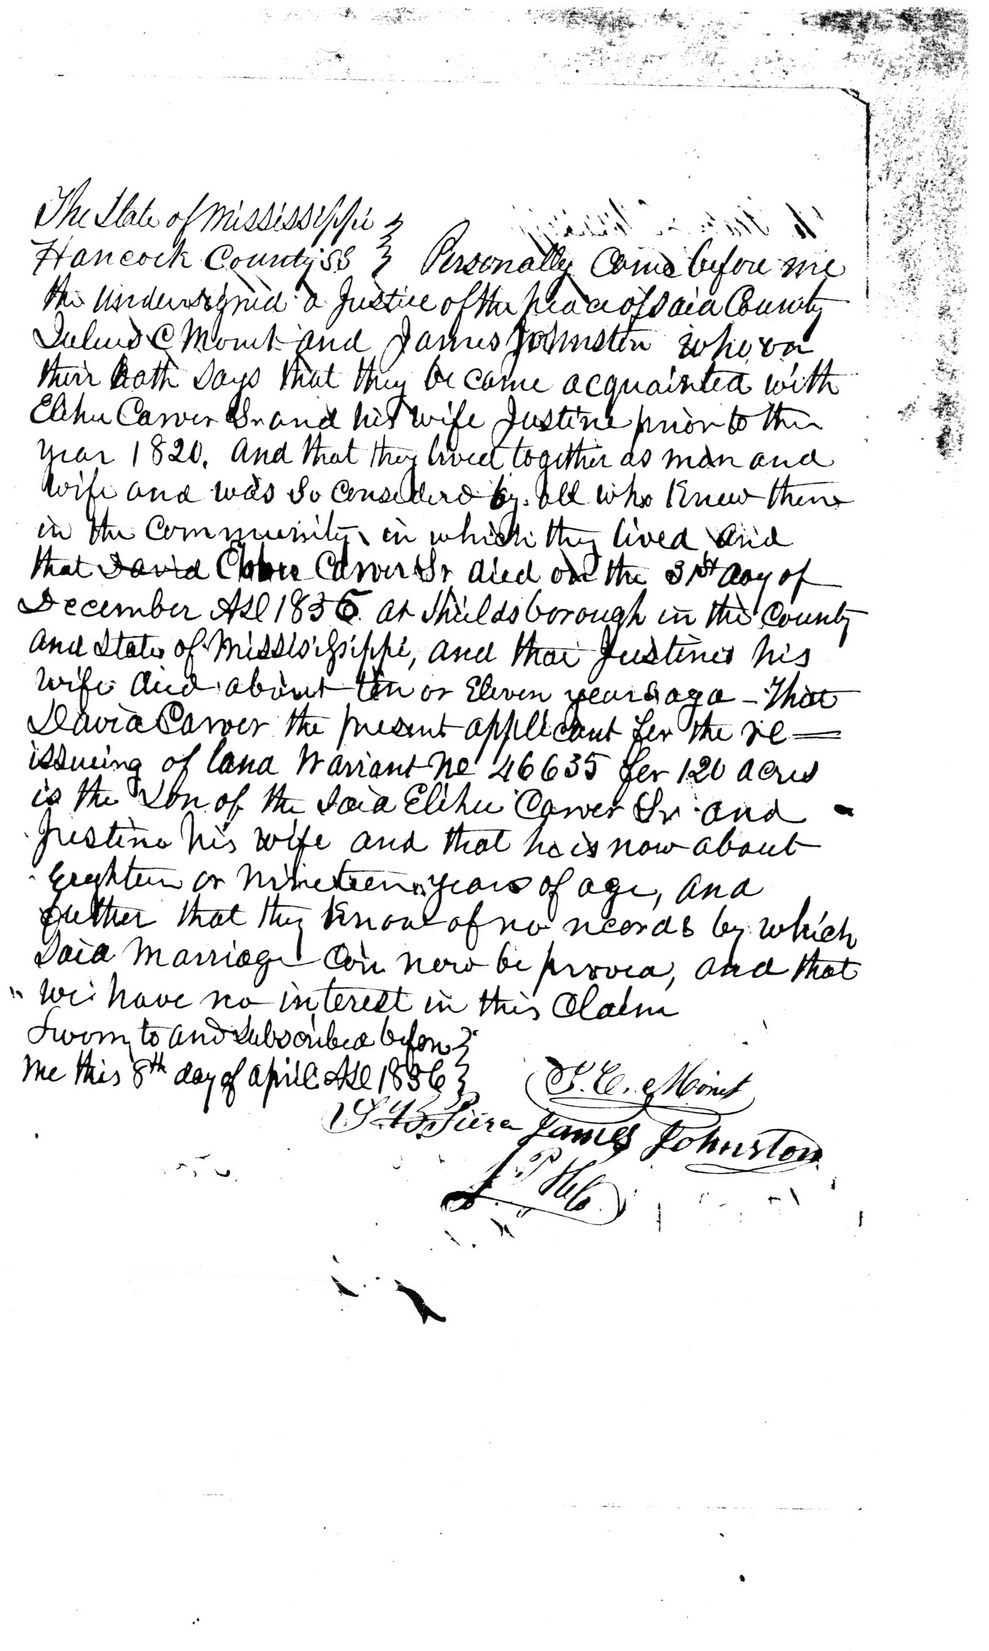 The State of Mississippi
Hancock County SS Personally Came before me
the undersigned a Justice of the peace of said County
C Monet and James Johnston who on
their oath Says that they became acquainted with
Elihu Carver Sr and his wife Justine prior to the
year 1820. and that they lived together as man and
wife and was so considerd by all who Knew them
in the Community in which they lived and
that David Carver Sr died on the 31st day of
December AD 1836 at Shieldsborough in the County
and State of Mississippi, and that Justine his
wife died about ten or Eleven years ago - That
David Carver the present applicant for the re=
issueing of land Warrant No 46635 for 120 acres
is the Son of the Said Elihu Carver Sr and
Justine his wife and that he is now about
Eighteen or Nineteen years of age, and
further that they Know of no records by which
Said Marriage Can now be proved, and that
we have no interest in this Claim
Sworn to and Subscribed before
me this 8th day of April AD 1836
C. Monet
James Johnston